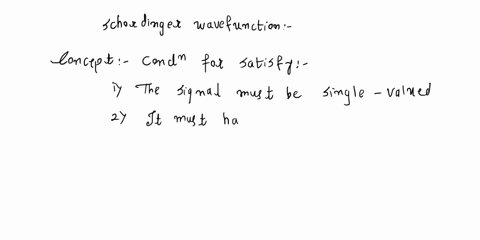 schordinger wavefunction:-
Concept:- Condⁿ for satisfy:-
1) The signal must be single-valued
2) It must ha